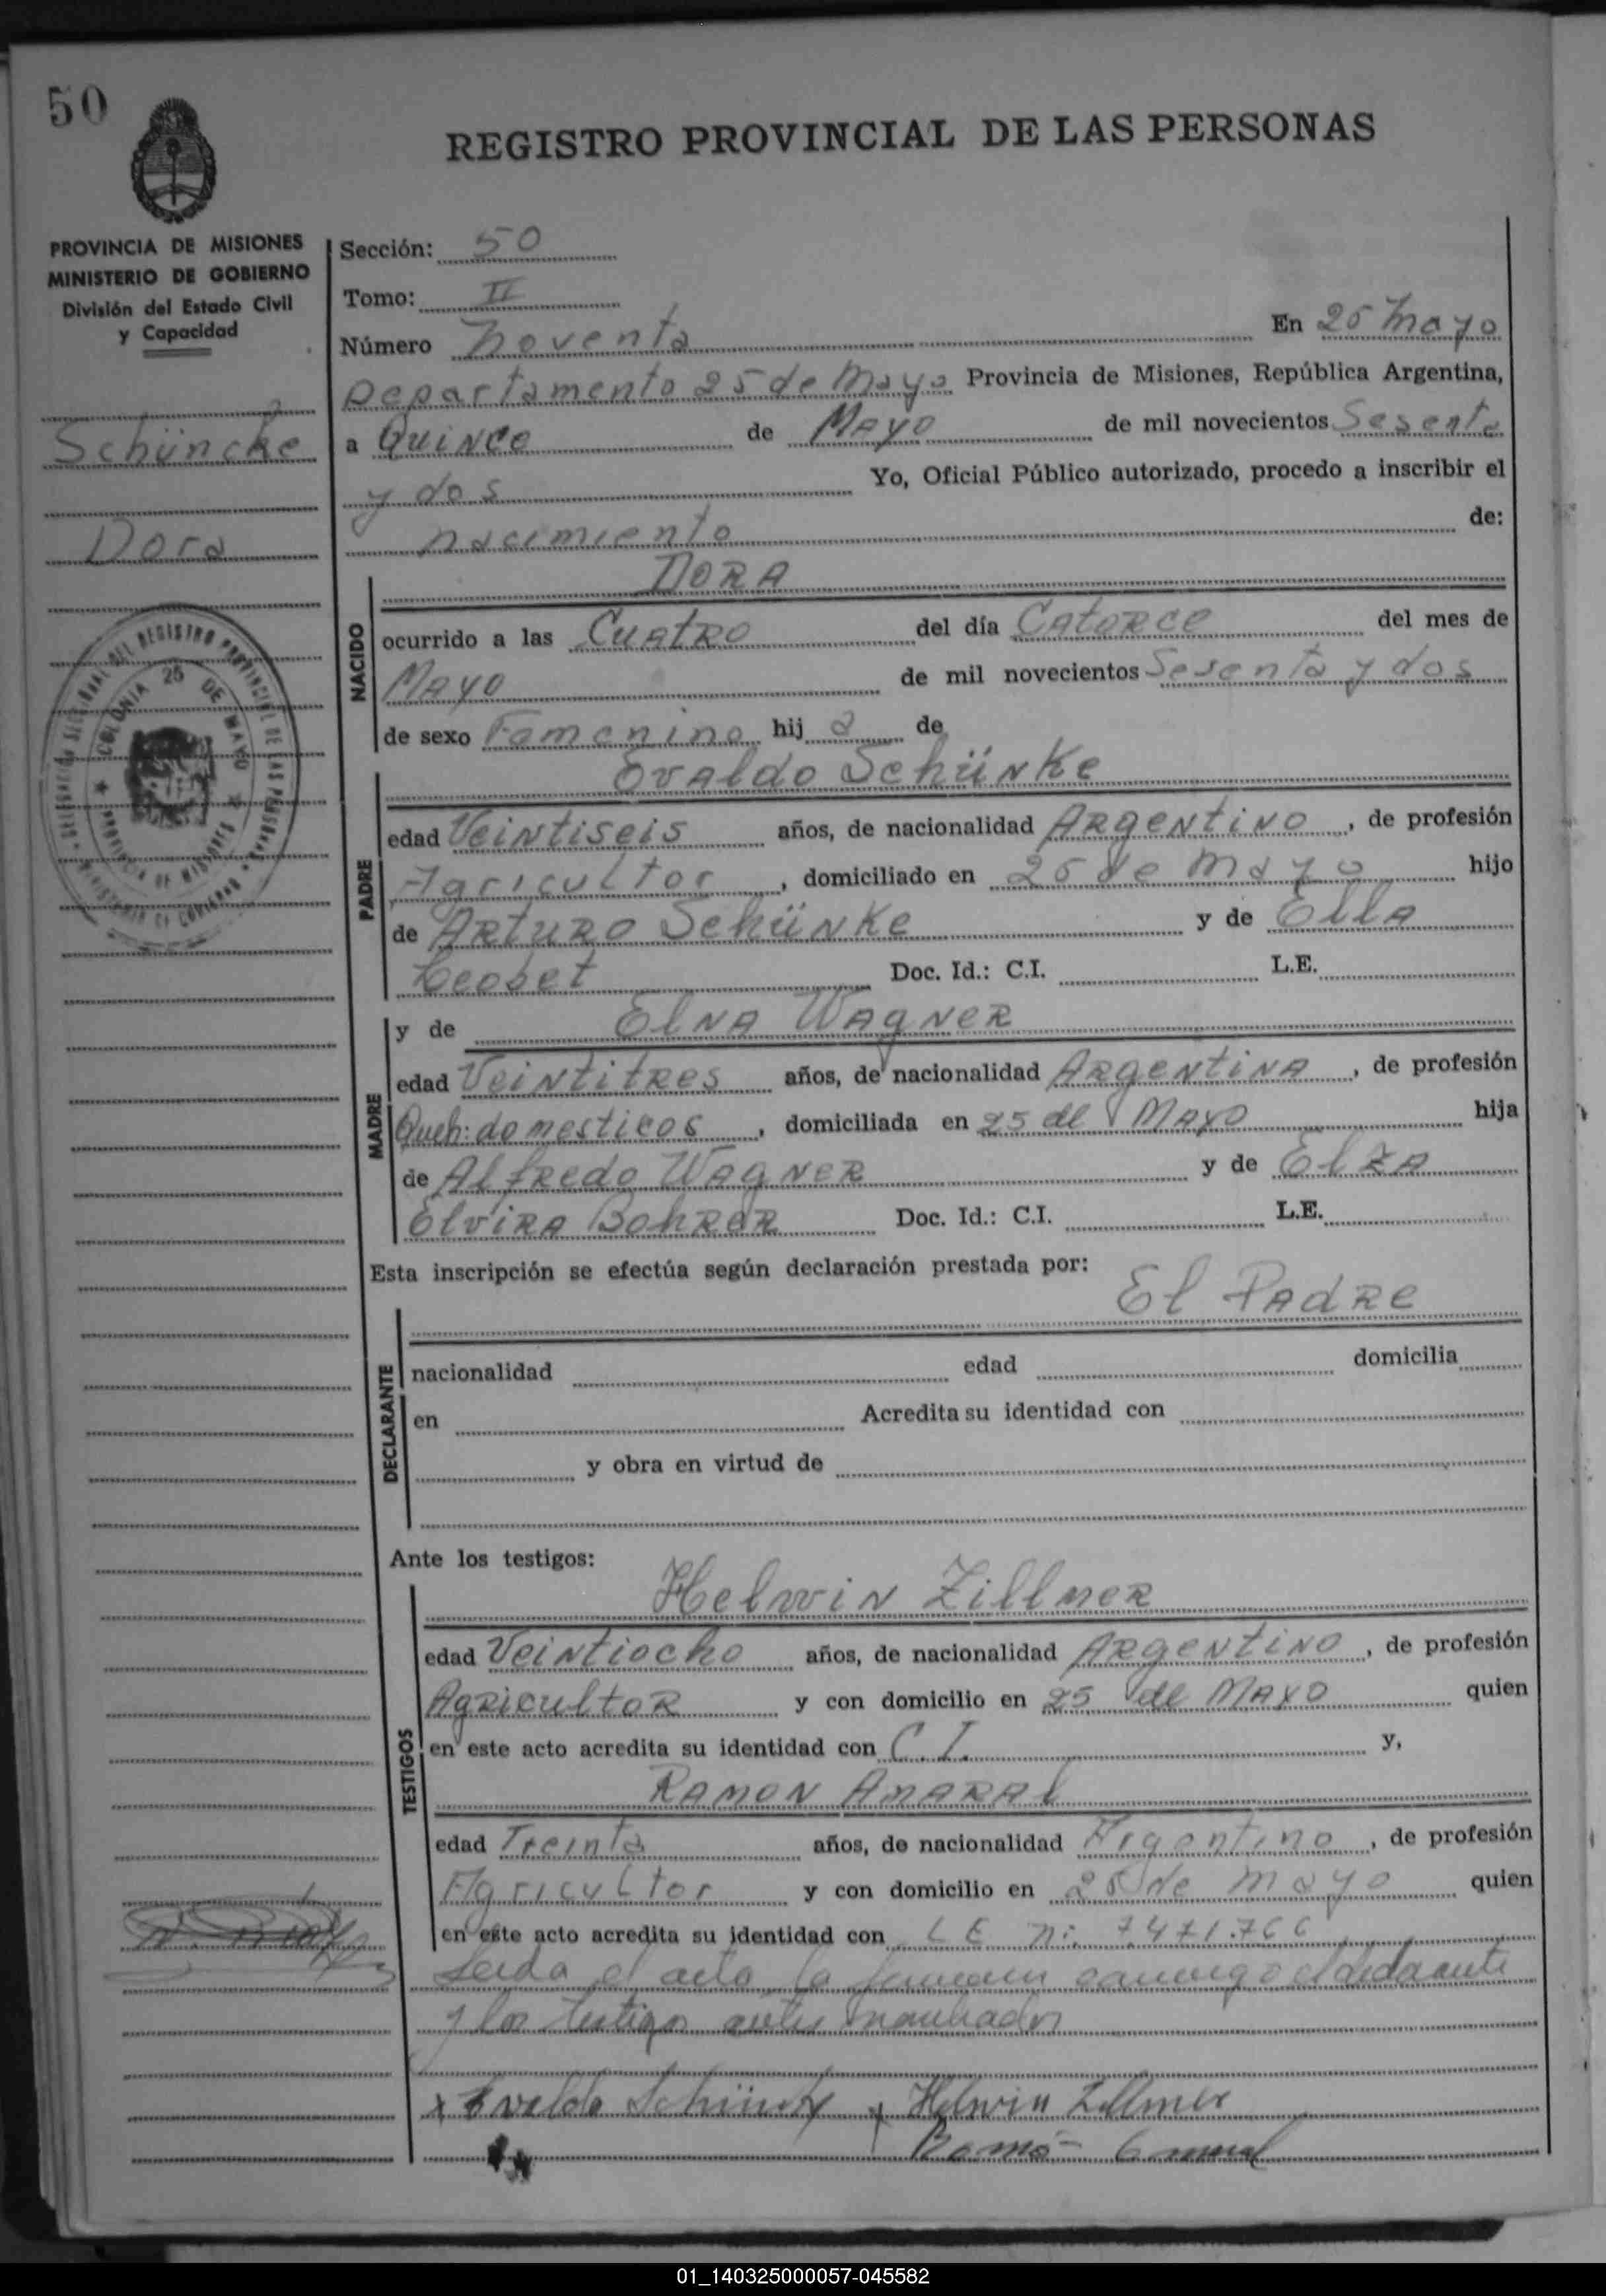 50
REGISTRO PROVINCIAL DE LAS PERSONAS
PROVINCIA DE MISIONES
MINISTERIO DE GOBIERNO
División del Estado Civil
y Capacidad
Schüncke
Dora
Sección: 50
Tomo: II
Número Noventa En 25 Mayo
Departamento 25 de Mayo Provincia de Misiones, República Argentina,
a Quince de Mayo de mil novecientos Sesenta
y dos Yo, Oficial Público autorizado, procedo a inscribir el
nacimiento de:
DORA
NACIDO
ocurrido a las Cuatro del día Catorce del mes de
Mayo de mil novecientos Sesenta y dos
de sexo Femenino hij a de
Evaldo Schünke
PADRE
edad Veintiseis años, de nacionalidad Argentino, de profesión
Agricultor, domiciliado en 25 de Mayo hijo
de Arturo Schünke y de Ella
Doc. Id.: C.I. L.E.
MADRE
y de Elna Wagner
edad Veintitres años, de nacionalidad Argentina, de profesión
Queh: domesticos, domiciliada en 25 de Mayo hija
de Alfredo Wagner y de Elza
Elvira Bohrer Doc. Id.: C.I. L.E.
Esta inscripción se efectúa según declaración prestada por:
El Padre
DECLARANTE
nacionalidad edad domicilia
en Acredita su identidad con
y obra en virtud de
Ante los testigos:
Helwin Zillmer
TESTIGOS
edad Veintiocho años, de nacionalidad Argentino, de profesión
Agricultor y con domicilio en 25 de Mayo quien
en este acto acredita su identidad con C.I. y,
Ramon Amaral
edad Treinta años, de nacionalidad Argentino, de profesión
Agricultor y con domicilio en 25 de Mayo quien
en este acto acredita su identidad con L E N: 7.471.766
Leida el acta la firman conmigo el declarante
y los testigos antes nombrados
x Evaldo Schünke x Helwin Zillmer
Ramón Amaral
COLONIA 25 DE MAYO
PROVINCIA DE MISIONES
DEL REGISTRO PROVINCIAL DE LAS PERSONAS
MINISTERIO DE GOBIERNO
01_140325000057-045582